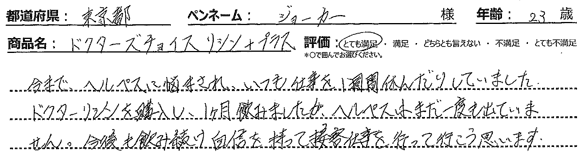 都道府県： 東京都 ペンネーム： ジョーカー 様 年齢： 23 歳
商品名： ドクターズチョイス リシン＋プラス 評価： とても満足 ・ 満足 ・ どちらとも言えない ・ 不満足 ・ とても不満足
※○で囲んでお選びください。
今まで、ヘルペスに悩まされ、いつも仕事を1週間休んだりしていました。
ドクターリシンを購入し、1ヶ月飲みましたが、ヘルペスはまだ一度も出ていま
せん。今後も飲み続け自信を持って接客仕事を行って行こう思います。